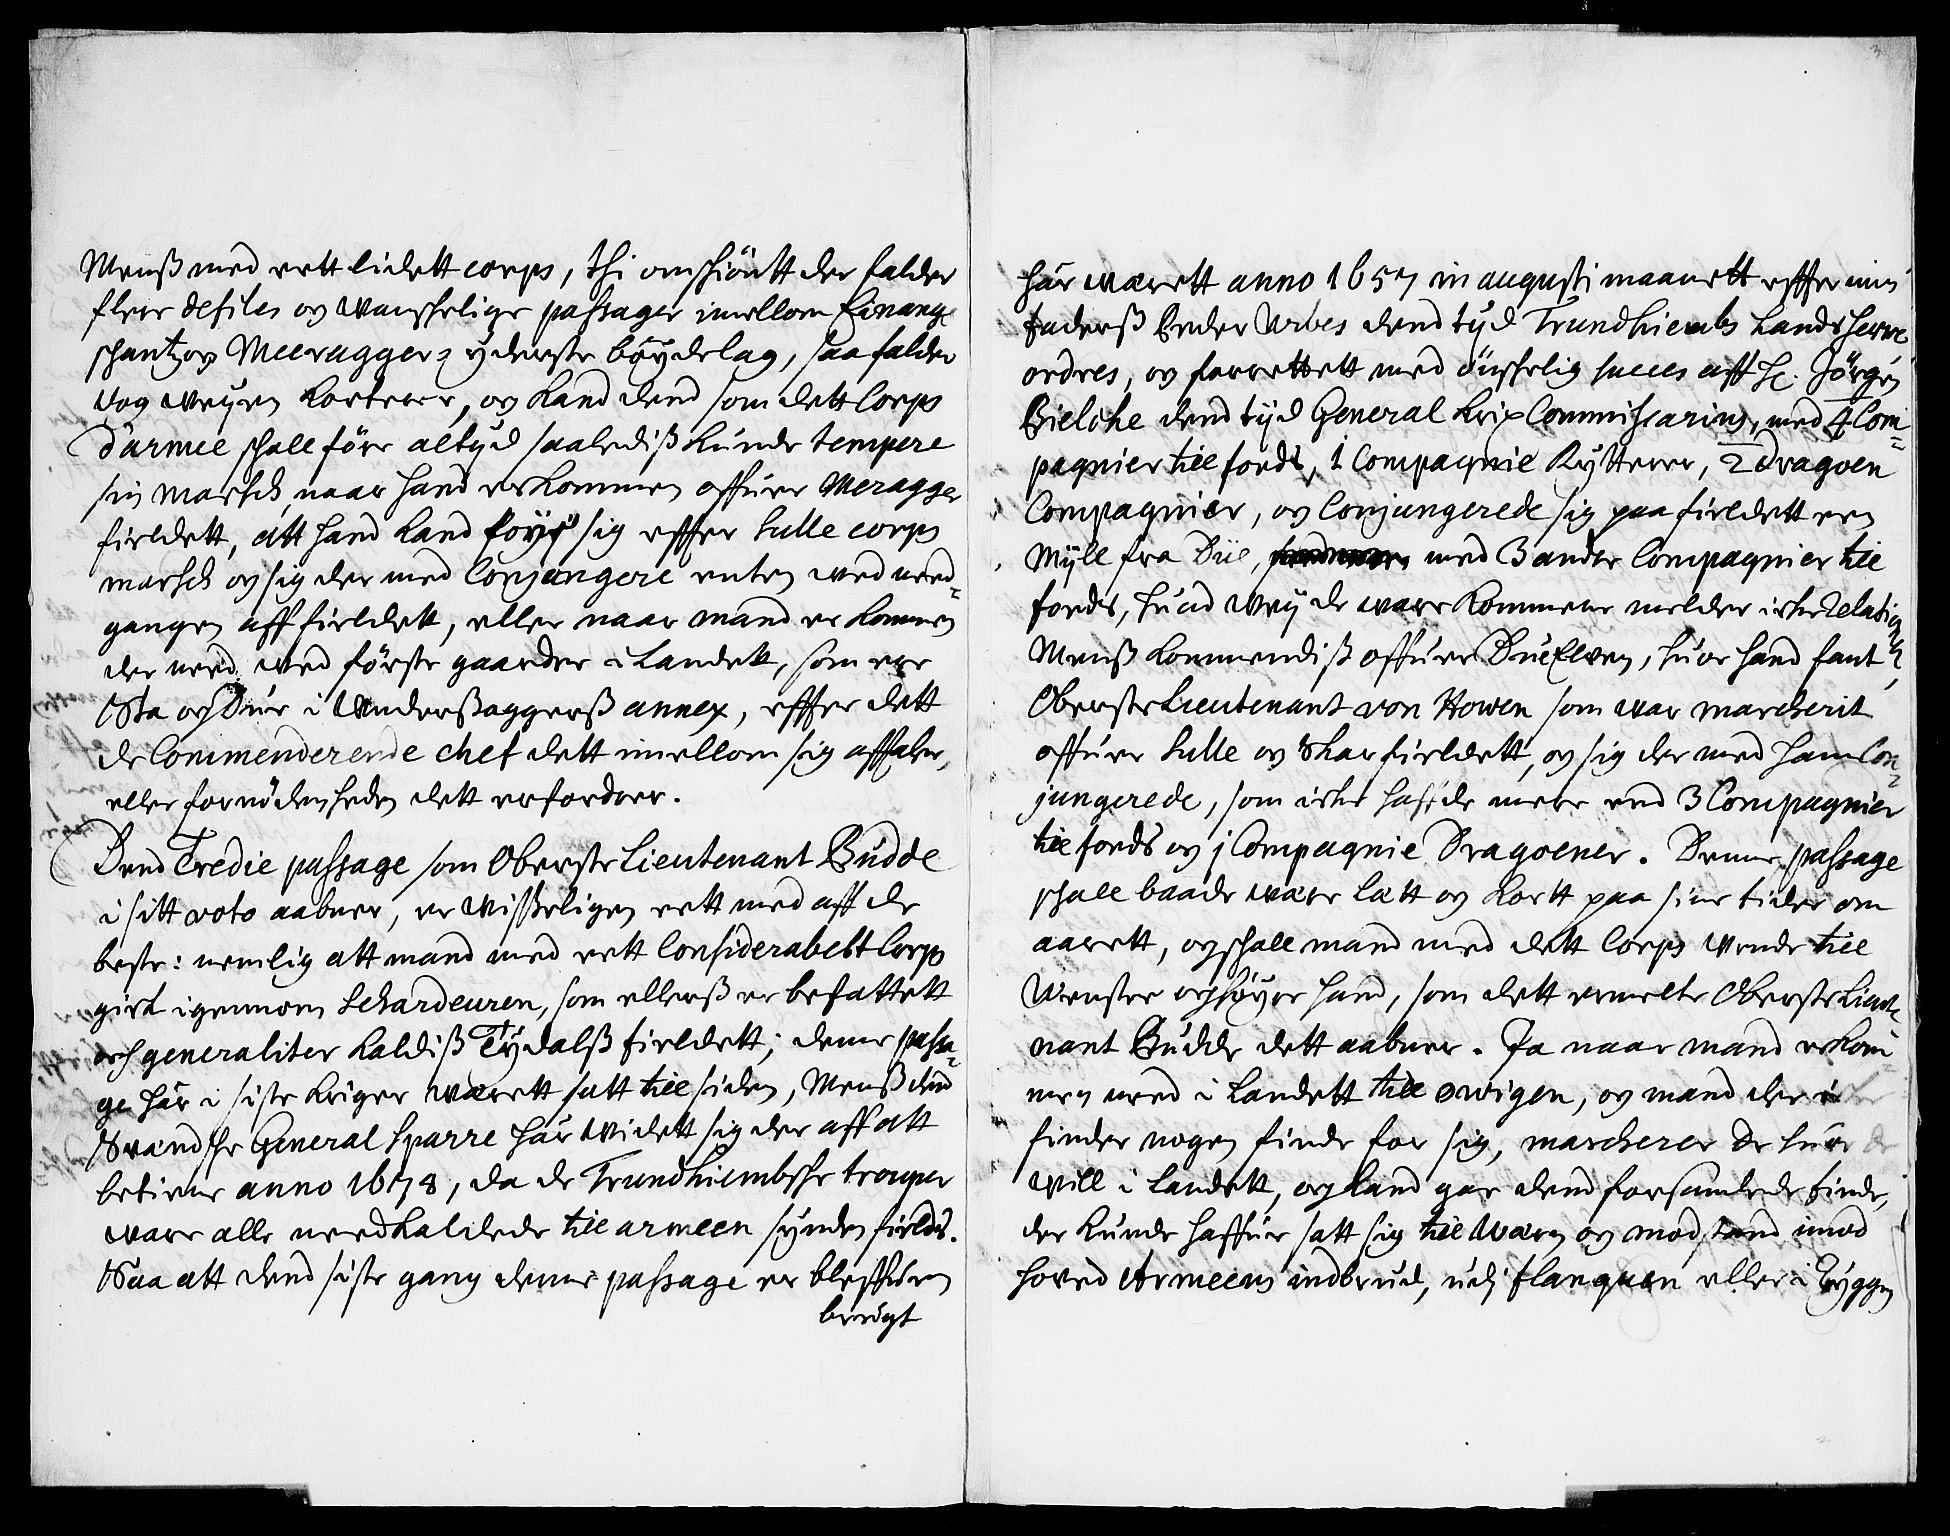 Menß med eett lidett corps, thi omschiöntt der falder
flere defiles og wanschelige passager imellom Einange
schantz og Meeragger z yderste böydelag, saa falder
dog weyen kortere, og kand dend som dett Corps
d'armee schall före altyd saalediß kunde tempere
sin marsch, naar hand er kommen offuer Meragger
fieldett, att hand kand föye sig effter hulle corps
marsch og sig der med Conjungere enten wed need-
gangen aff fieldett, eller naar mand er kommen
der need wed förste gaarder i Landett, som ere
Sta og Dúe i Underßaggerß annex, effter dett
de Commenderende chef dett imellom sig afftaler,
eller fornödenheden dett erfordrer.
Dend Tredie passage som Oberste Lieutenant Budde
i sitt voto aabner, er wisseligen eett med aff de
beste: nemlig att mand med eett Considerabelt Corps
gick igennom Schardeuren, som ellerß er befattett
och generaliter kaldiß Tÿdalß fieldett; denne passa-
ge här i siste kriger wärett satt till siden, Menß dend
Swendsche General Sparre här widett sig der aff att
betiene anno 1678, da de Trundhiembsche trouper
ware alle needkaldede till armeen synden fields.
Saa att dend siste gang denne passage er bleffuen
brúgt
här wärett anno 1657 in augusti maanett effter min
faderß Peder Urbes dend tyd Trundhiembs Landsherre
ordres, og forrettett med ünschelig succes aff H. Jörgen
Bielche dend tyd General krix Commissarius, med 4 Com-
pagnier till fods, 1 Compagnie Rytterer, 2 dragoen
Compagnier, og Conjungerede sig paa fieldett een
Myle fra Düe, med 3 andre Compagnier till
fods, huad wey de ware kommene melder icke Relation
Menß kommendiß offuer Duefloen, huor hand fant
Oberste Lieutenant von Howen som war marcherit
offuer hulle og Skarfieldett, og sig der med ham Con-
jungerede, som icke haffde mere end 3 Compagnier
till fods og j Compagnie Dragoener. Denne passage
schall baade wäre lätt og kortt paa sine tider om
aarett, og schall mand med dett Corps wende till
Wenstre och höyre hand, som dett ermelte Oberste Lieute-
nant Budde dett aabner. Ja naar mand er kom-
men need i Landett till owigen, og mand der ei
finder nogen fiende for sig, marcherer de huor de
will i Landett, og kand gar dend forsamlede fiende,
der kunde haffue satt sig till wärn og modstand imod
hoved Armeens indbrud, udj flanquen eller i Ryggen